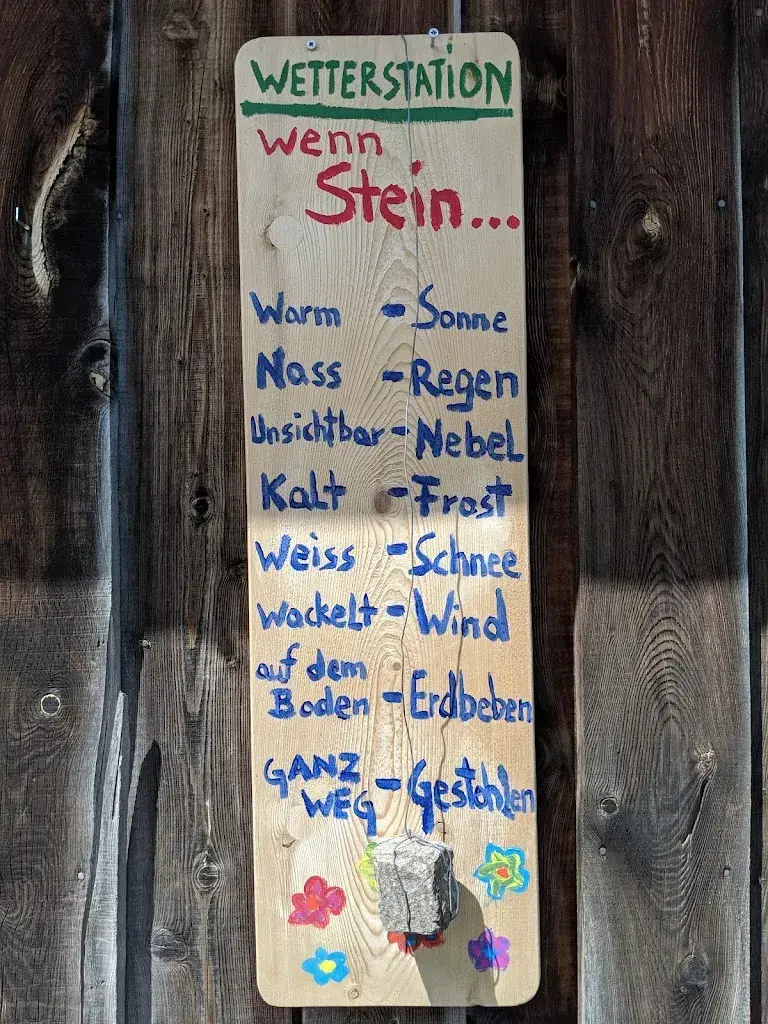 WETTERSTATION
wenn
Stein...
Warm - Sonne
Nass - Regen
Unsichtbar - Nebel
Kalt - Frost
Weiss - Schnee
Wackelt - Wind
auf dem
Boden - Erdbeben
GANZ
WEG - Gestohlen